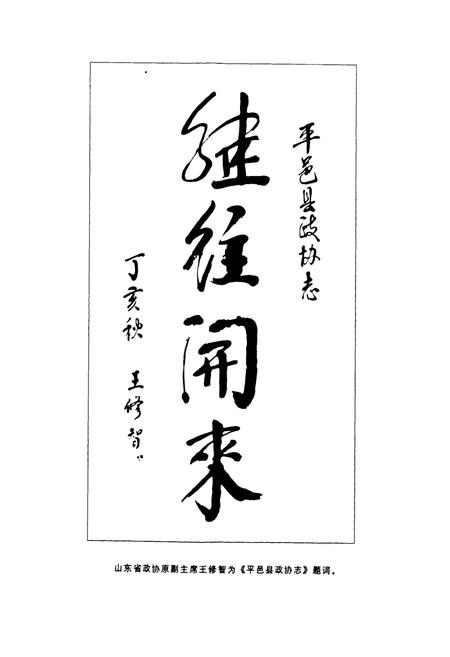 平邑县政协志
继往開來
丁亥秋 王修智
山东省政协原副主席王修智为《平邑县政协志》题词。